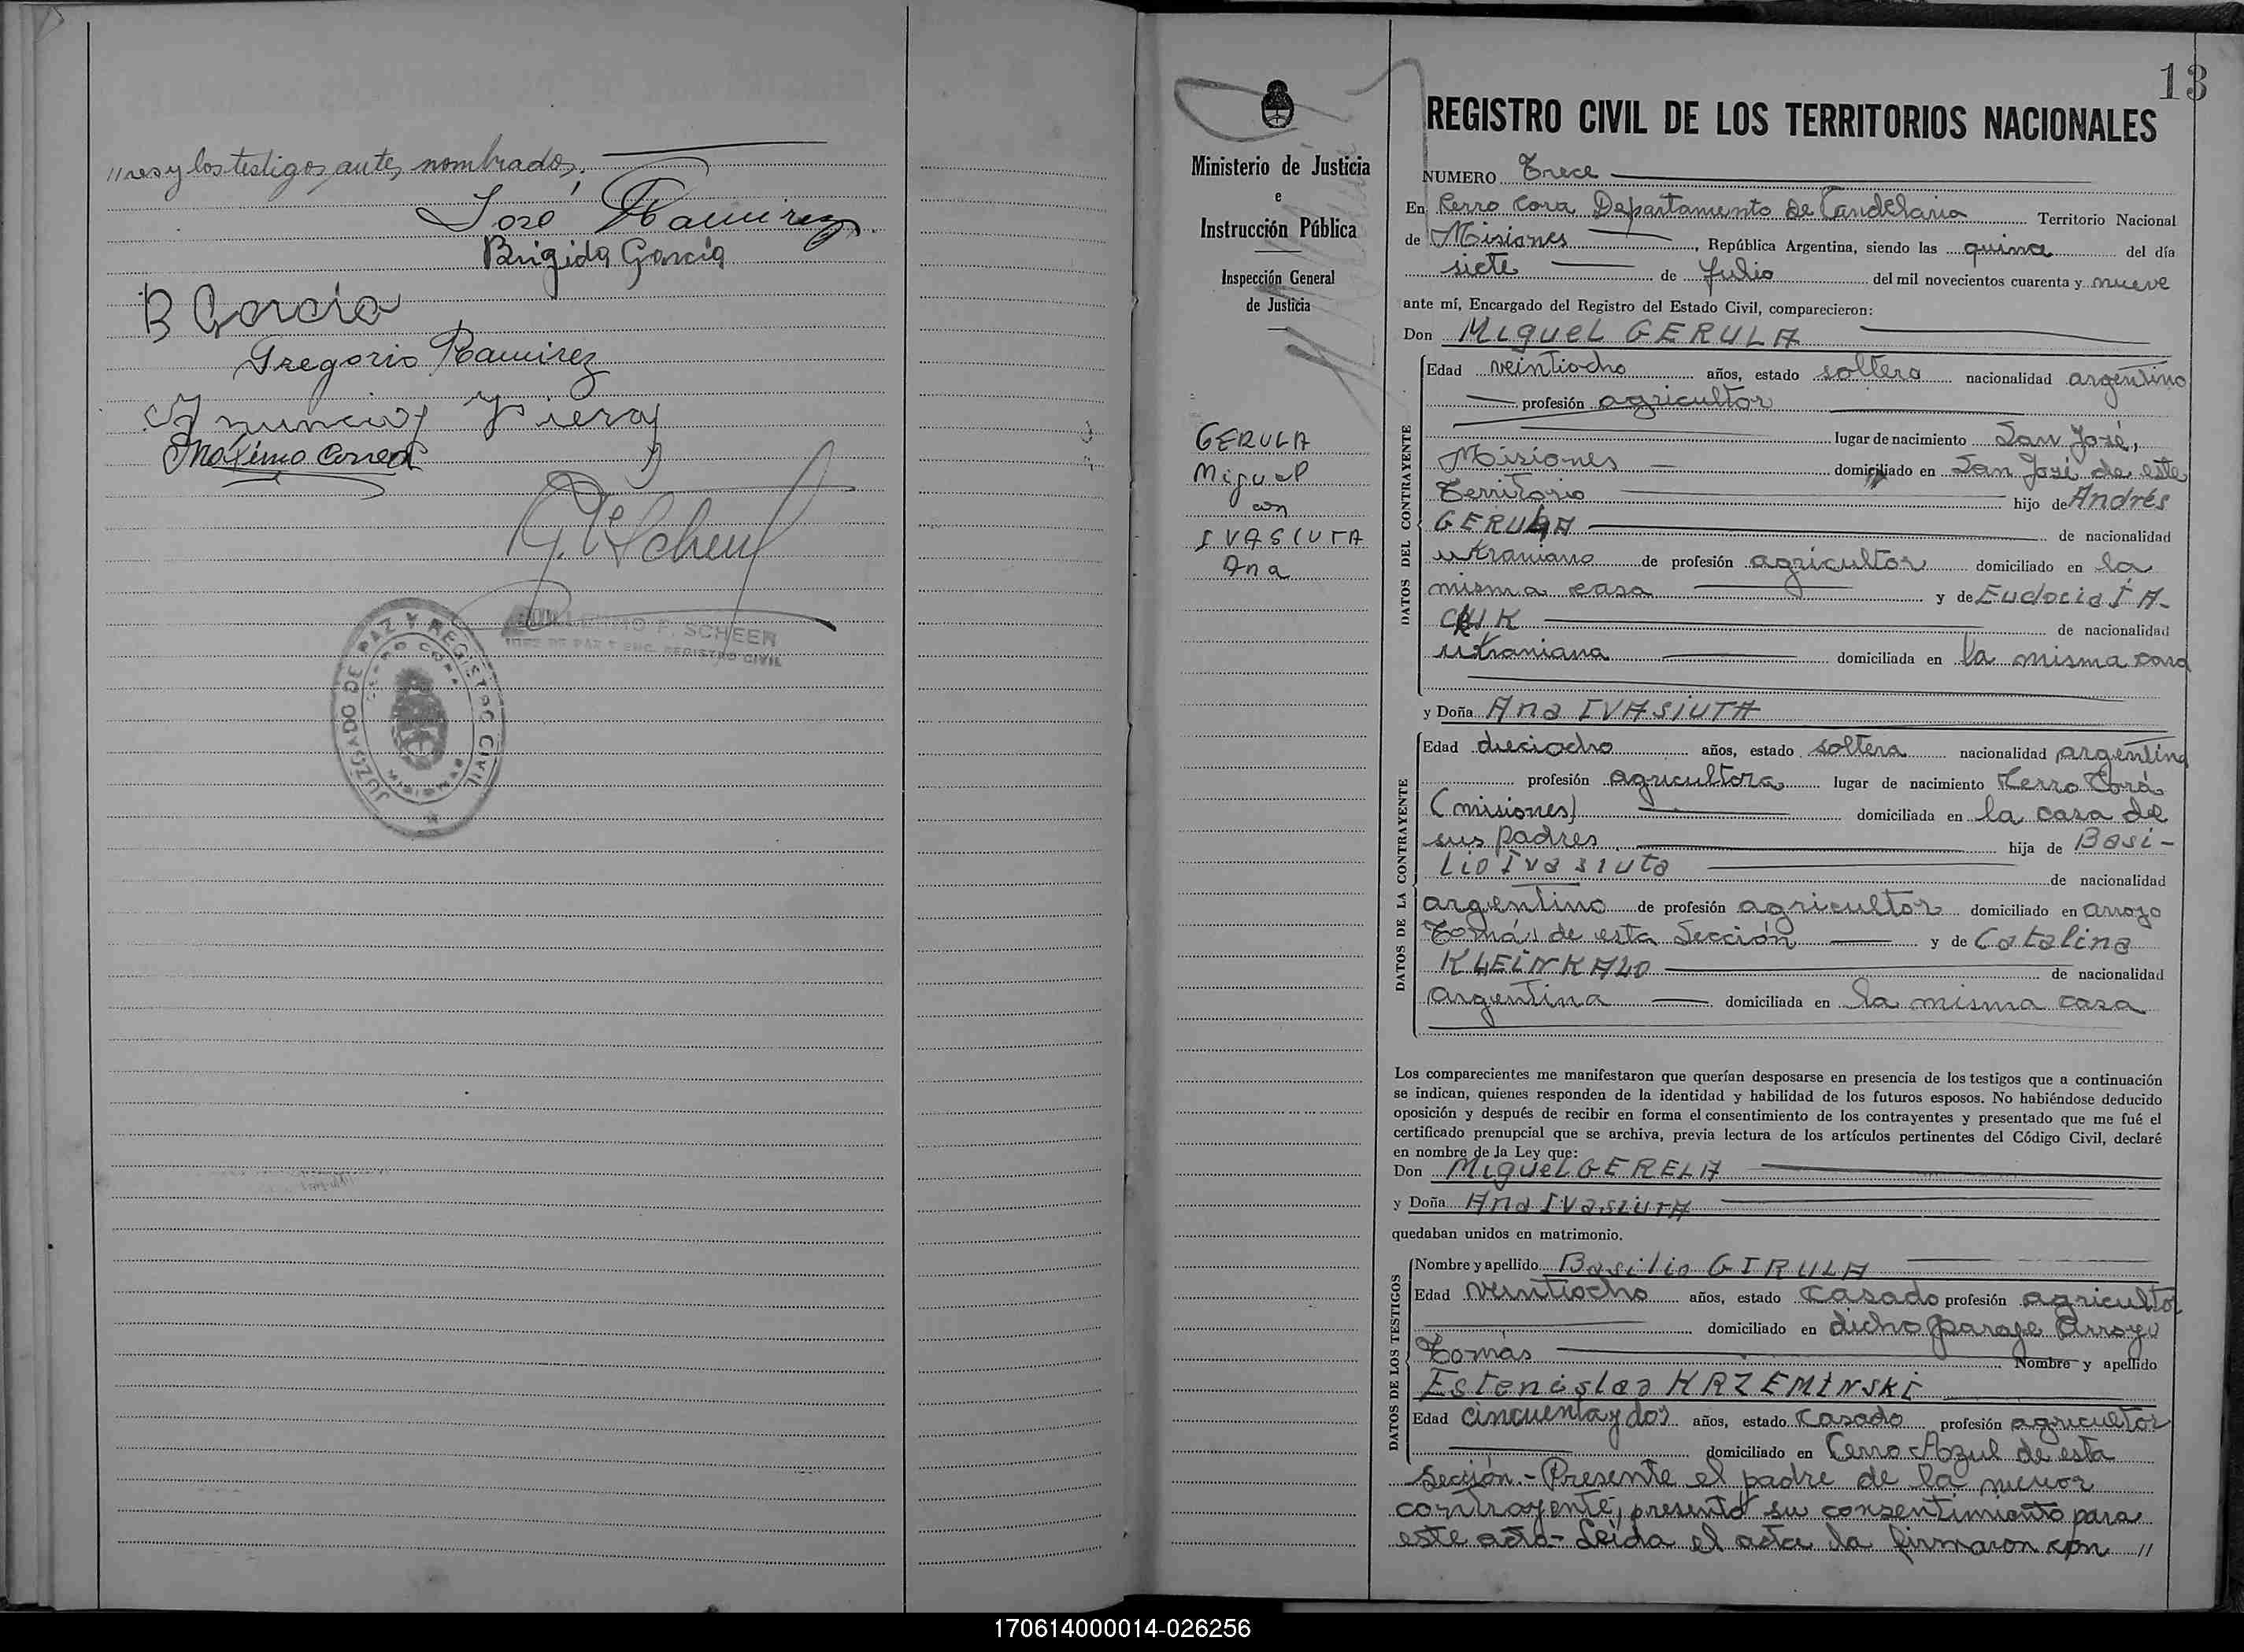 //res y los testigos antes nombrados.
José Ramirez
Brigida Garcia
B Garcia
Gregorio Ramirez
Máximo Correa
GUILLERMO P. SCHEER
JUEZ DE PAZ Y ENC. REGISTRO CIVIL
JUZGADO DE PAZ Y REGISTRO CIVIL
CERRO CORA
MISIONES
13
Ministerio de Justicia
e
Instrucción Pública
Inspección General
de Justicia
GERULA
Miguel
con
IVASIUTA
Ana
REGISTRO CIVIL DE LOS TERRITORIOS NACIONALES
NUMERO Trece
En Cerro Cora Departamento de Candelaria Territorio Nacional
de Misiones, República Argentina, siendo las quince del día
siete de Julio del mil novecientos cuarenta y nueve
ante mí, Encargado del Registro del Estado Civil, comparecieron:
Don Miguel GERULA
DATOS DEL CONTRAYENTE
Edad veintiocho años, estado soltero nacionalidad argentino
profesión agricultor
lugar de nacimiento San José,
Misiones domiciliado en San José de este
Territorio hijo de Andrés
GERULA de nacionalidad
ukraniano de profesión agricultor domiciliado en la
misma casa y de Eudocia
de nacionalidad
ukraniana domiciliada en la misma casa
y Doña Ana IVASIUTA
DATOS DE LA CONTRAYENTE
Edad dieciocho años, estado soltera nacionalidad argentina
profesión agricultora lugar de nacimiento Cerro Corá
(misiones) domiciliada en la casa de
sus padres hija de Basi-
lio Ivasiuta de nacionalidad
argentino de profesión agricultor domiciliado en arroyo
Tomás de esta Sección y de Catalina
KLEINKALO de nacionalidad
argentina domiciliada en la misma casa
Los comparecientes me manifestaron que querían desposarse en presencia de los testigos que a continuación
se indican, quienes responden de la identidad y habilidad de los futuros esposos. No habiéndose deducido
oposición y después de recibir en forma el consentimiento de los contrayentes y presentado que me fué el
certificado prenupcial que se archiva, previa lectura de los artículos pertinentes del Código Civil, declaré
en nombre de la Ley que:
Don Miguel GERELA
y Doña Ana IVASIUTA
quedaban unidos en matrimonio.
DATOS DE LOS TESTIGOS
Nombre y apellido Basilio GIRULA
Edad veintiocho años, estado casado profesión agricultor
domiciliado en dicho paraje Arroyo
Tomás Nombre y apellido
Estenislao KRZEMINSKI
Edad cincuenta y dos años, estado casado profesión agricultor
domiciliado en Cerro Azul de esta
Sección.- Presente el padre de la menor
contrayente, presentó su consentimiento para
este acto- Leída el acta la firmaron con //
170614000014-026256